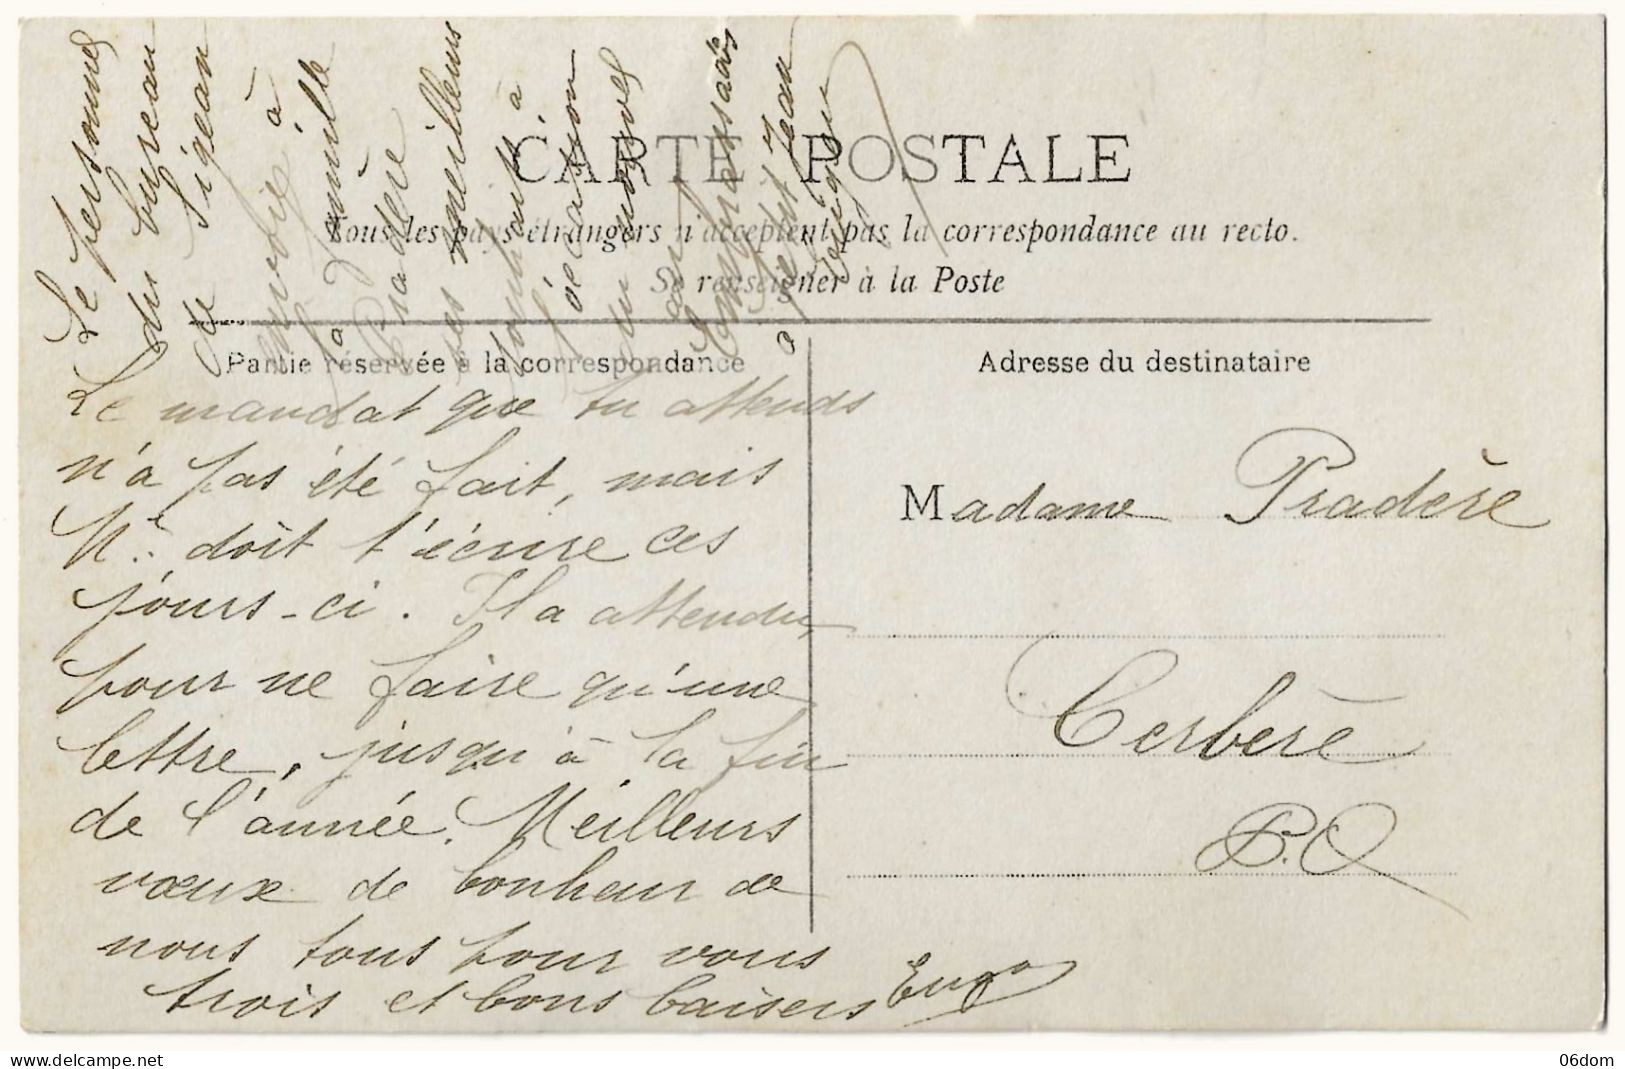 Le personnel
du bureau
de Sigean
envoie à
la famille
Pradère
ses meilleurs
souhaits à
l'occasion
du nouvel
an
ambassadeur
à
CARTE POSTALE
Tous les pays étrangers n'acceptent pas la correspondance au recto.
Se renseigner à la Poste
Partie réservée à la correspondance
Le mandat que tu attends
n'a pas été fait, mais
doit t'écrire ces
jours-ci. Il a attendu,
pour ne faire qu'une
lettre, jusqu'à la fin
de l'année. Meilleurs
vœux de bonheur de
nous tous pour vous
trois et bons baisers
Adresse du destinataire
Madame Pradère
Cerbère
P.O
www.delcampe.net
06dom